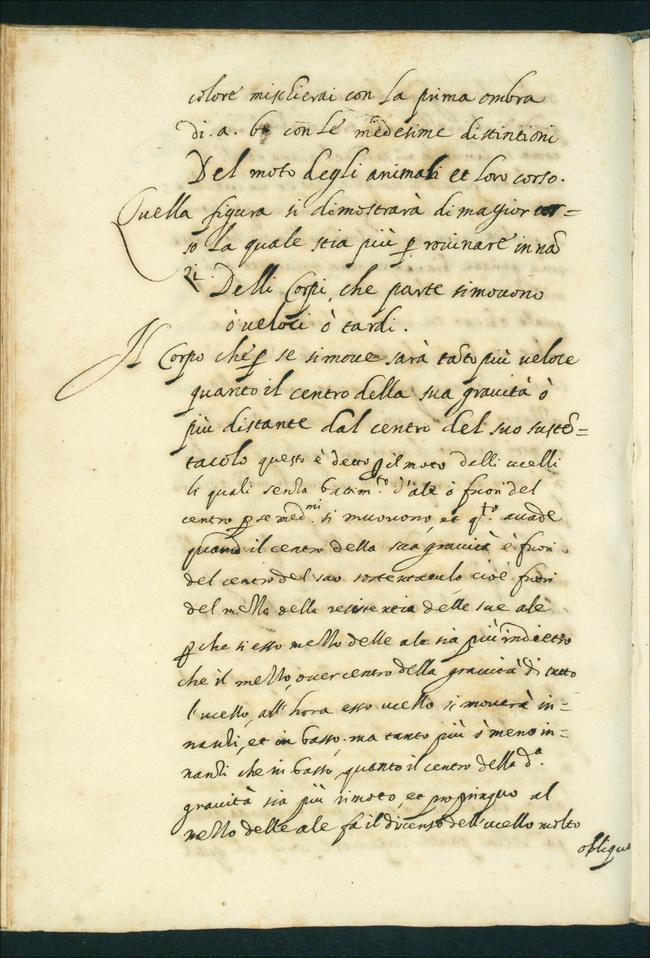 colore mischierai con la prima ombra
di .a. b. con le medesime distintioni
Del moto degli animali et loro corso.
Quella figura si dimostrarà di magior cor=
so la quale stia più ꝑ rovinare inna
zi. Delli Corpi, che parte simovono
ò veloci ò tardi.
Il Corpo che ꝑ se simove sarà tãto più veloce
quanto il centro della sua gravità ò
più distante dal centro del suo sustẽ=
tacolo questo è detto ꝑ il moto delli ucelli
li quali senza battim.to d'ale ò fuori del
centro ꝑ se med.mi si muovono, et q.to accade
quando il centro della sua gravità è fuori
del centro del suo sostentaculo cioè fuori
del mezzo della resistentia delle sue ale
ꝑche si esso mezzo delle ale sia più indietro
che il mezzo, over centro della gravità di tutto
l'ucello, all'hora esso ucello si moverà in=
nanzi, et in basso, ma tanto più ò meno in=
nanzi che in basso, quanto il centro della d.a
gravità sia più rimoto, et propinquo al
mezzo delle ale fa il dicenso dell'ucello molto
obliquo